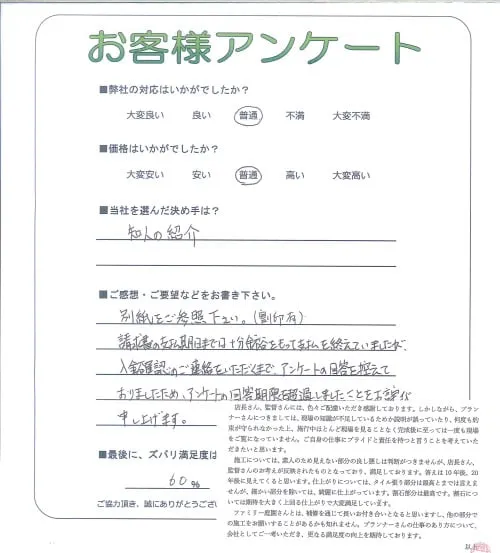 お客様アンケート
■弊社の対応はいかがでしたか?
大変良い 良い 普通 不満 大変不満
■価格はいかがでしたか?
大変安い 安い 普通 高い 大変高い
■当社を選んだ決め手は?
知人の紹介
■ご感想・ご要望などをお書き下さい。
別紙をご参照下さい。(割印有)
請求書の支払期日まで日十分余裕をもって支払を終えていましたが、
入金確認のご連絡をいただくまで、アンケートの回答を控えて
おりましたため、アンケートの回答期限を超過しましたことをお詫び
申し上げます。
店長さん、監督さんには、色々ご配慮いただき感謝しております。しかしながら、プラン
ナーさんにつきましては、現場の知識が不足しているためか説明が誤っていたり、何度も約
束が守られなかった上、施行中ほとんど現場を見ることなく完成後に至っては一度も現場
をご覧になっていません。ご自身の仕事にプライドと責任を持つと言うことを考えていた
だきたいと思います。
施工については、素人のため見えない部分の良し悪しは判断がつきませんが、店長さん、
監督さんのお考えが反映されたものとなっており、満足しております。答えは10年後、20
年後に見えてくると思います。仕上がりについては、タイル張り部分は最高とまでは言えま
せんが、細かい部分を除いては、綺麗に仕上がっています。割石部分は最高です。割石につ
いては期待を大きく上回る仕上がりで大変満足しています。
ファミリー庭園さんとは、補修を通じて長いお付き合いとなると思いますし、他の部分で
の施工をお願いすることがあるかも知れません。プランナーさんの仕事のあり方について、
会社としてご一考いただき、更なる満足度の向上を期待しております。
以上
■最後に、ズバリ満足度は
60%
ご協力頂き、誠にありがとうござい